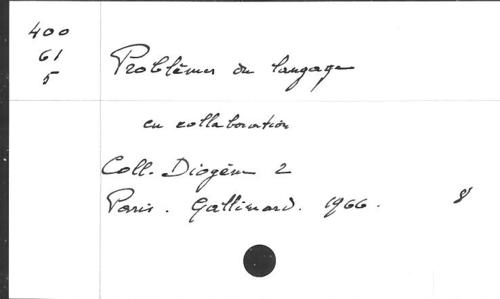 400
61
5
Problèmes du langage
en collaboration
Coll. Diogène 2
Paris. Gallimard. 1966. 8